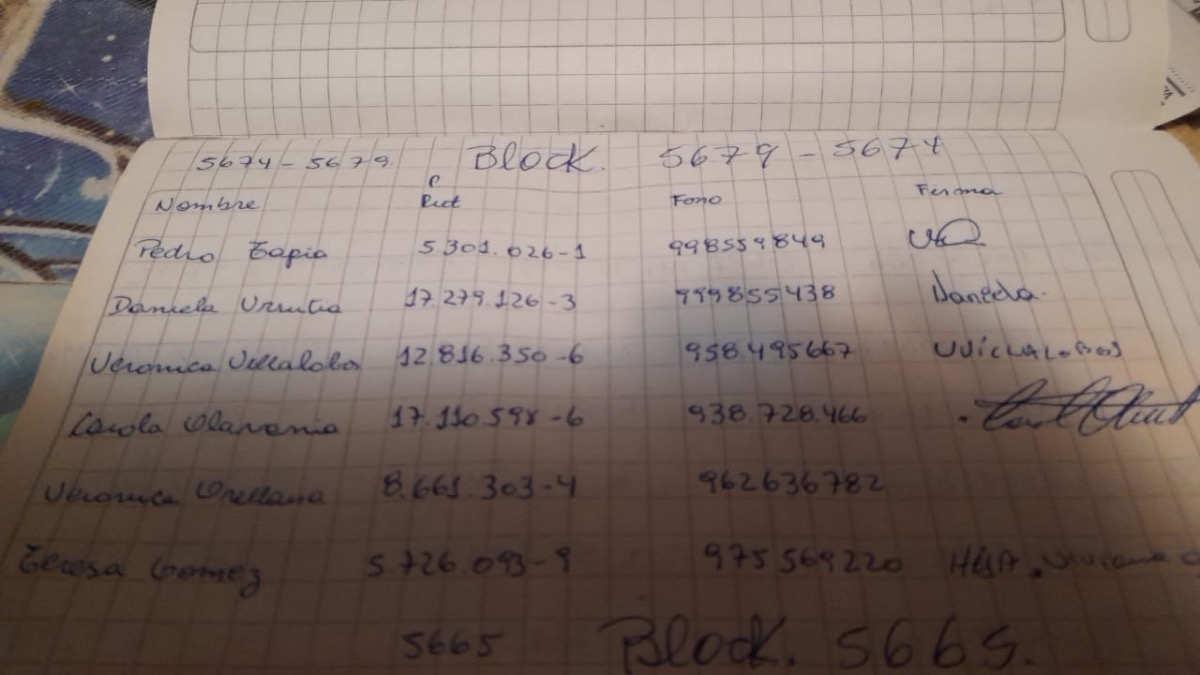 5674-5679. Block. 5679-5674
Nombre Rut Fono Firma
Pedro Tapia 5.301.026-1 998559849
Daniela Urrutia 17.279.126-3 999855438 Daniela.
Veronica Villalobos 12.816.350-6 958.495667 VVillalobos
Carola 17.110.598-6 938.728.466
Veronica Orellana 8.661.303-4 962636782
Teresa Gomez 5.726.093-9 975569220
5665 Block. 5665.